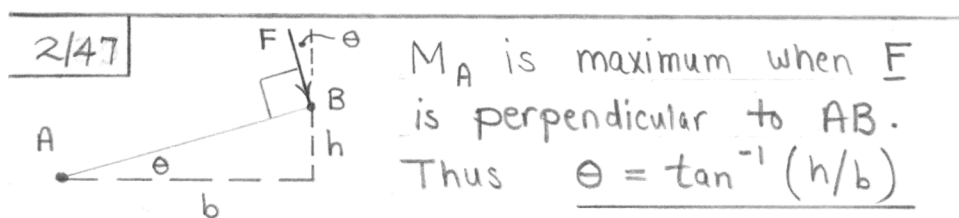 2/47
F
θ
B
A
h
θ
b
M_A is maximum when F
is perpendicular to AB.
Thus θ = tan⁻¹ (h/b)